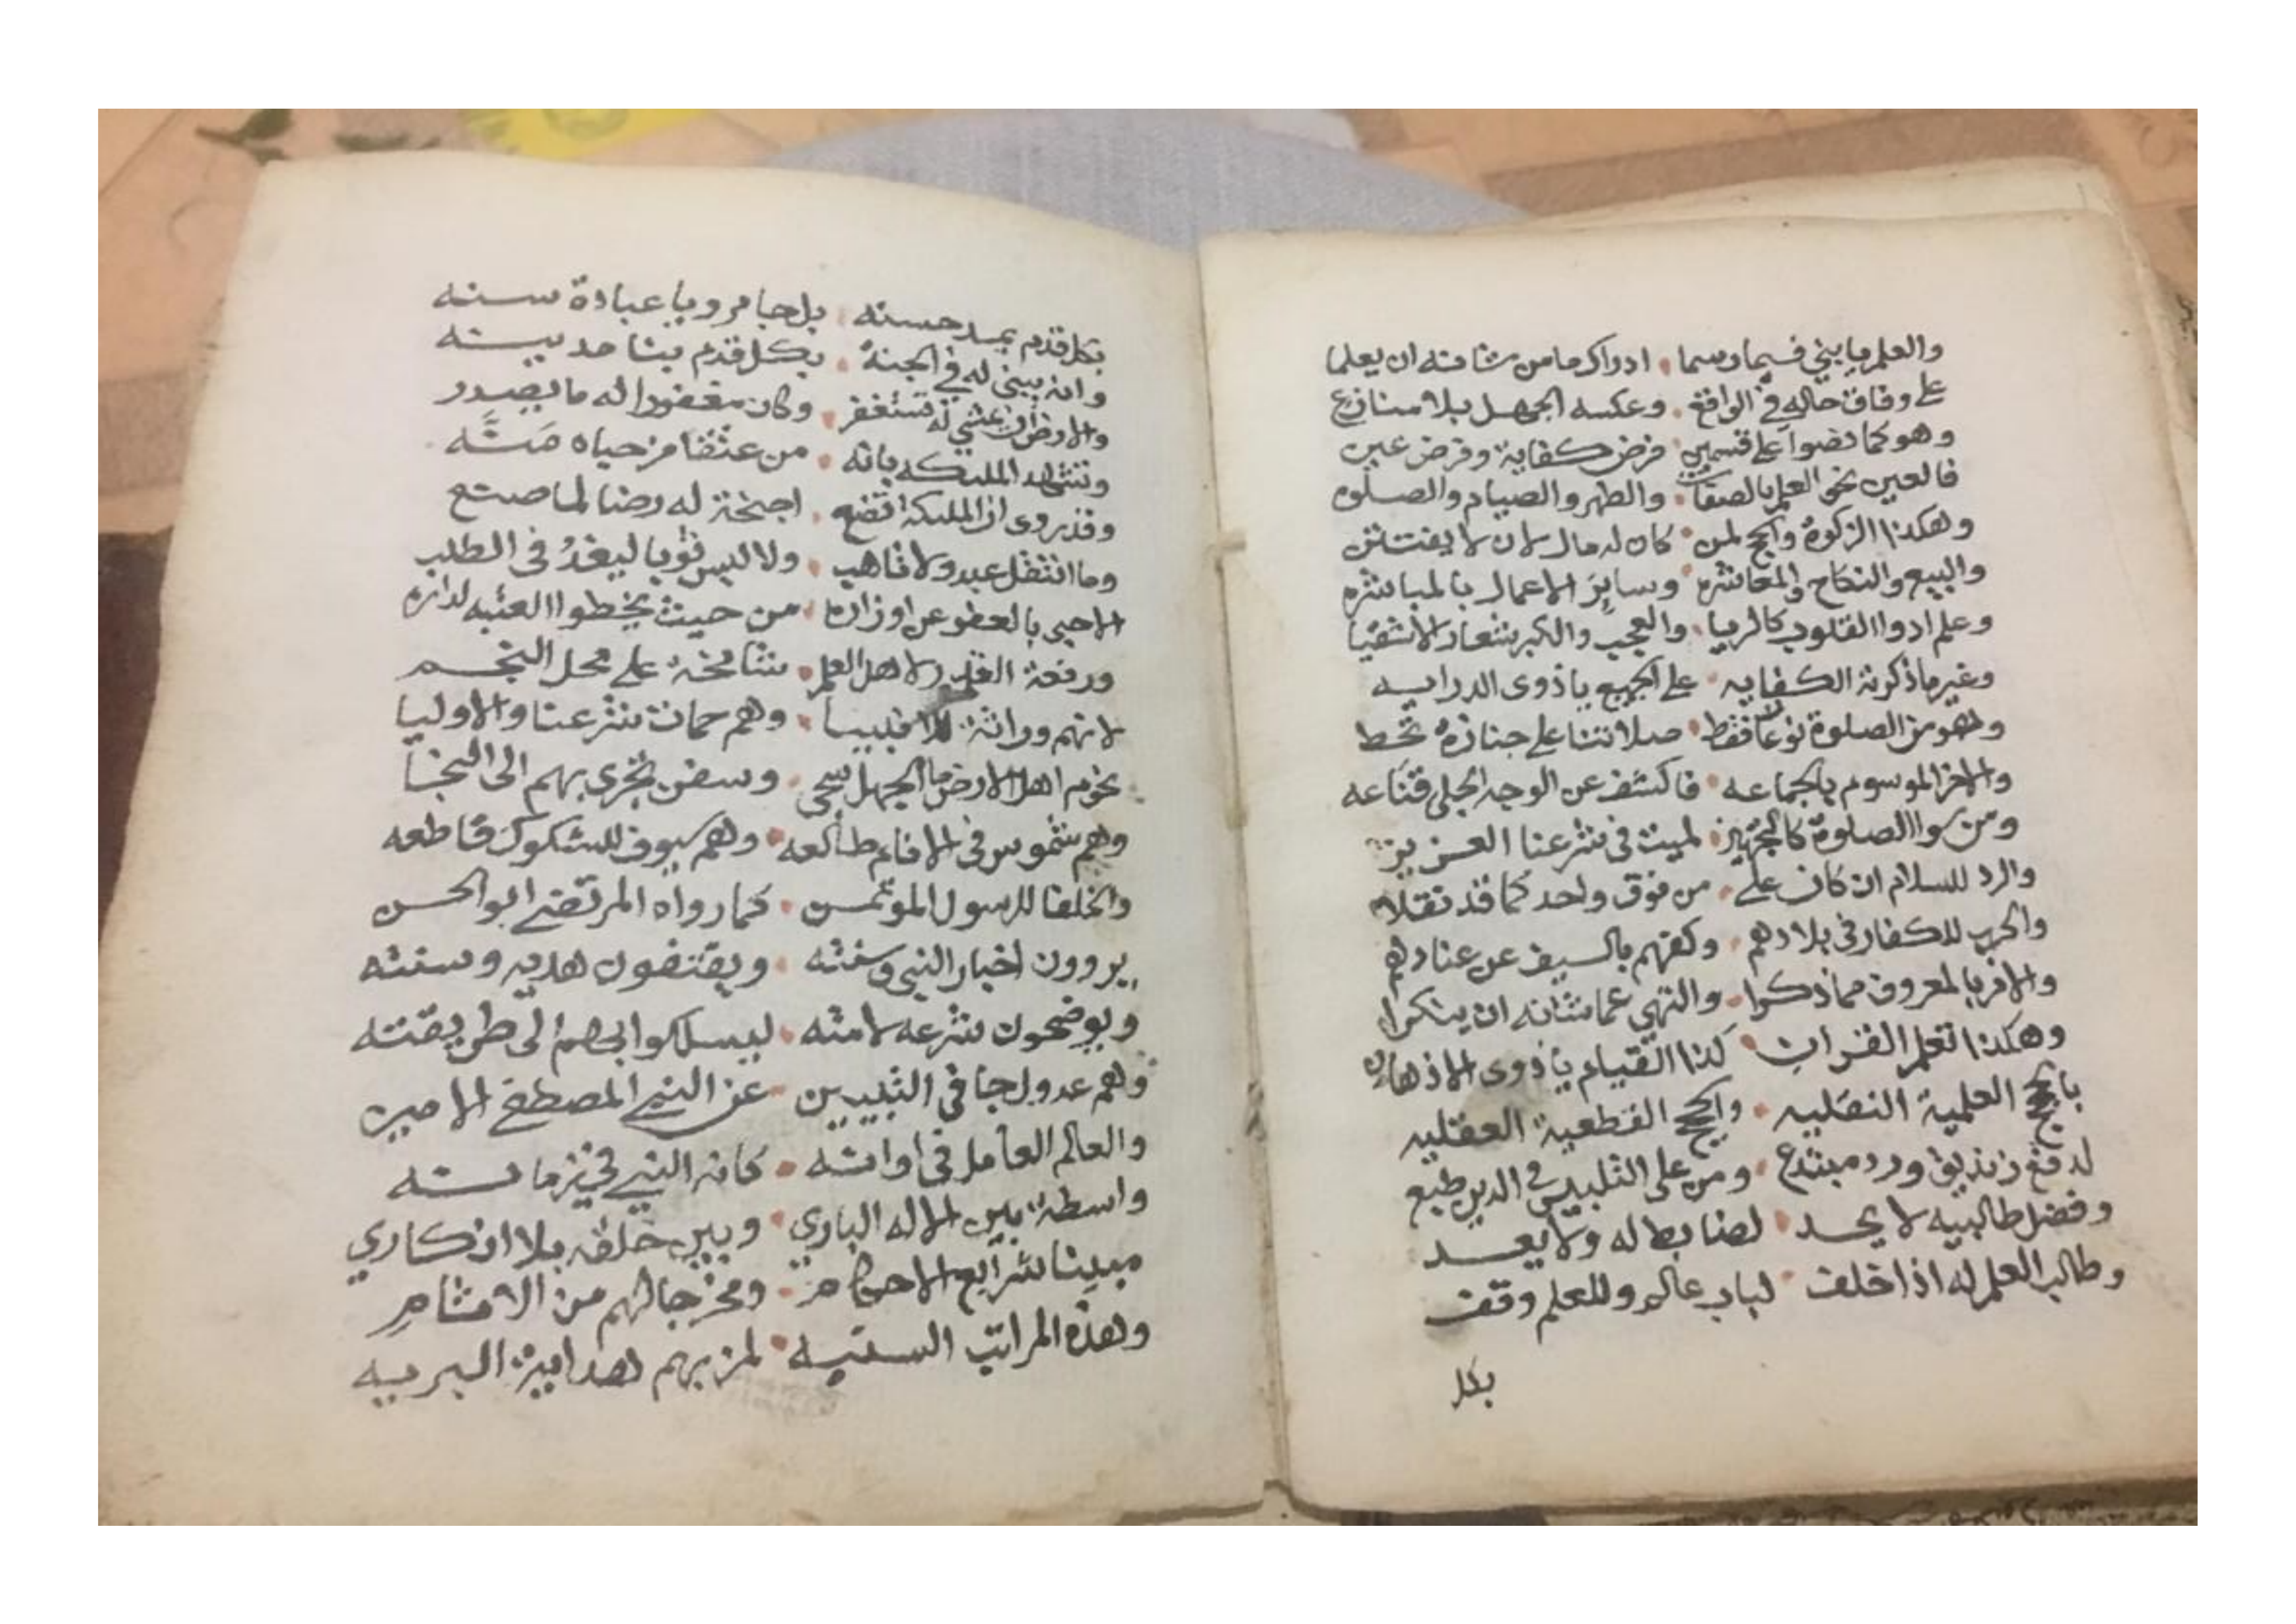 والعلم يا بني فيما وسما ۰ ادراك ما من شانه ان يعلما
على وفاق حاله في الواقع ۰ وعكسه الجهل بلا منازع
وهو كما نصوا على قسمين ۰ فرض كفاية وفرض عين
فالعين نحو العلم بالصفات ۰ والطهر والصيام والصلوة
وهكذا الزكوة والحج لمن ۰ كان له مال لان لا يفتتن
والبيع والنكاح والمعاشره ۰ وساير الاعمال بالمباشره
وعلم ادوا القلوب كالريا ۰ والعجب والكبر شعار الاشقيا
وغير ما ذكرته الكفايه ۰ على الجميع يا ذوى الدرايه
وهو من الصلوة نوعان فقط ۰ صلاتنا على جنازة تحط
والاخر الموسوم بالجماعه ۰ فاكشف عن الوجه الجلي قناعه
ومن سوا الصلوة كالتجهيز ۰ لميت في شرعنا العزيز
والرد للسلام ان كان على ۰ من فوق واحد كما قد نقلا
والحرب للكفار في بلادهم ۰ وكفهم بالسيف عن عنادهم
والامر بالمعروف مما ذكرا ۰ والنهي عما شانه ان ينكرا
وهكذا تعلم القران ۰ كذا القيام يا ذوى الاذهان
بالحجج العلمية النقليه ۰ والحجج القطعية العقليه
لدفع زنديق ورد مبتدع ۰ ومن على التلبيس في الدين طبع
وفضل طالبيه لا يحد ۰ لضابط له ولا يعد
وطالب العلم له اذا خلف ۰ لباب عالم وللعلم وقف
بكل
بكل قدم يمد حسنه ۰ بل جا مرويا عبادة سنه
وانه يبنى له في الجنة ۰ بكل قدم يشاهد بيته
والارض ان مشي له تستغفر ۰ وكان مغفورا له ما يصدر
وتشهد المليكه بانه ۰ من عتقا من حياه منه
وقد روى ان المليكه تضع ۰ اجنحة له رضا لما صنع
وما انتقل عبد ولا تاهب ۰ ولا لبس ثوبا ليغد في الطلب
الا حبي بالعفو عن اوزاره ۰ من حيث يخطوا العتبه لداره
ورفعة القدر لاهل العلم ۰ شامخة على محل النجم
لانهم وراثة للانبيا ۰ وهم حماة شرعنا والاوليا
نجوم اهل الارض ما الجهل سجى ۰ وسفن تجرى بهم الى النجا
وهم شموس في الانام طالعه ۰ وهم سيوف للشكوك قاطعه
والخلفا للرسول الموتمن ۰ كما رواه المرتضى ابو الحسن
يروون اخبار النبي وسنته ۰ ويقتفون هديه وسنته
ويوضحون شرعه لامته ۰ ليسلكوا بهم الى طريقته
وهم عدول جا في التبيين ۰ عن النبي المصطفى الامين
والعالم العامل في اوانه ۰ كانه النبي في زمانه
واسطة بين الاله الباري ۰ وبين خلقه بلا انكاري
مبينا شرايع الاحكام ۰ ومخرجا لهم من الاثام
وهذه المراتب السنيه ۰ لمن بهم هداية البريه